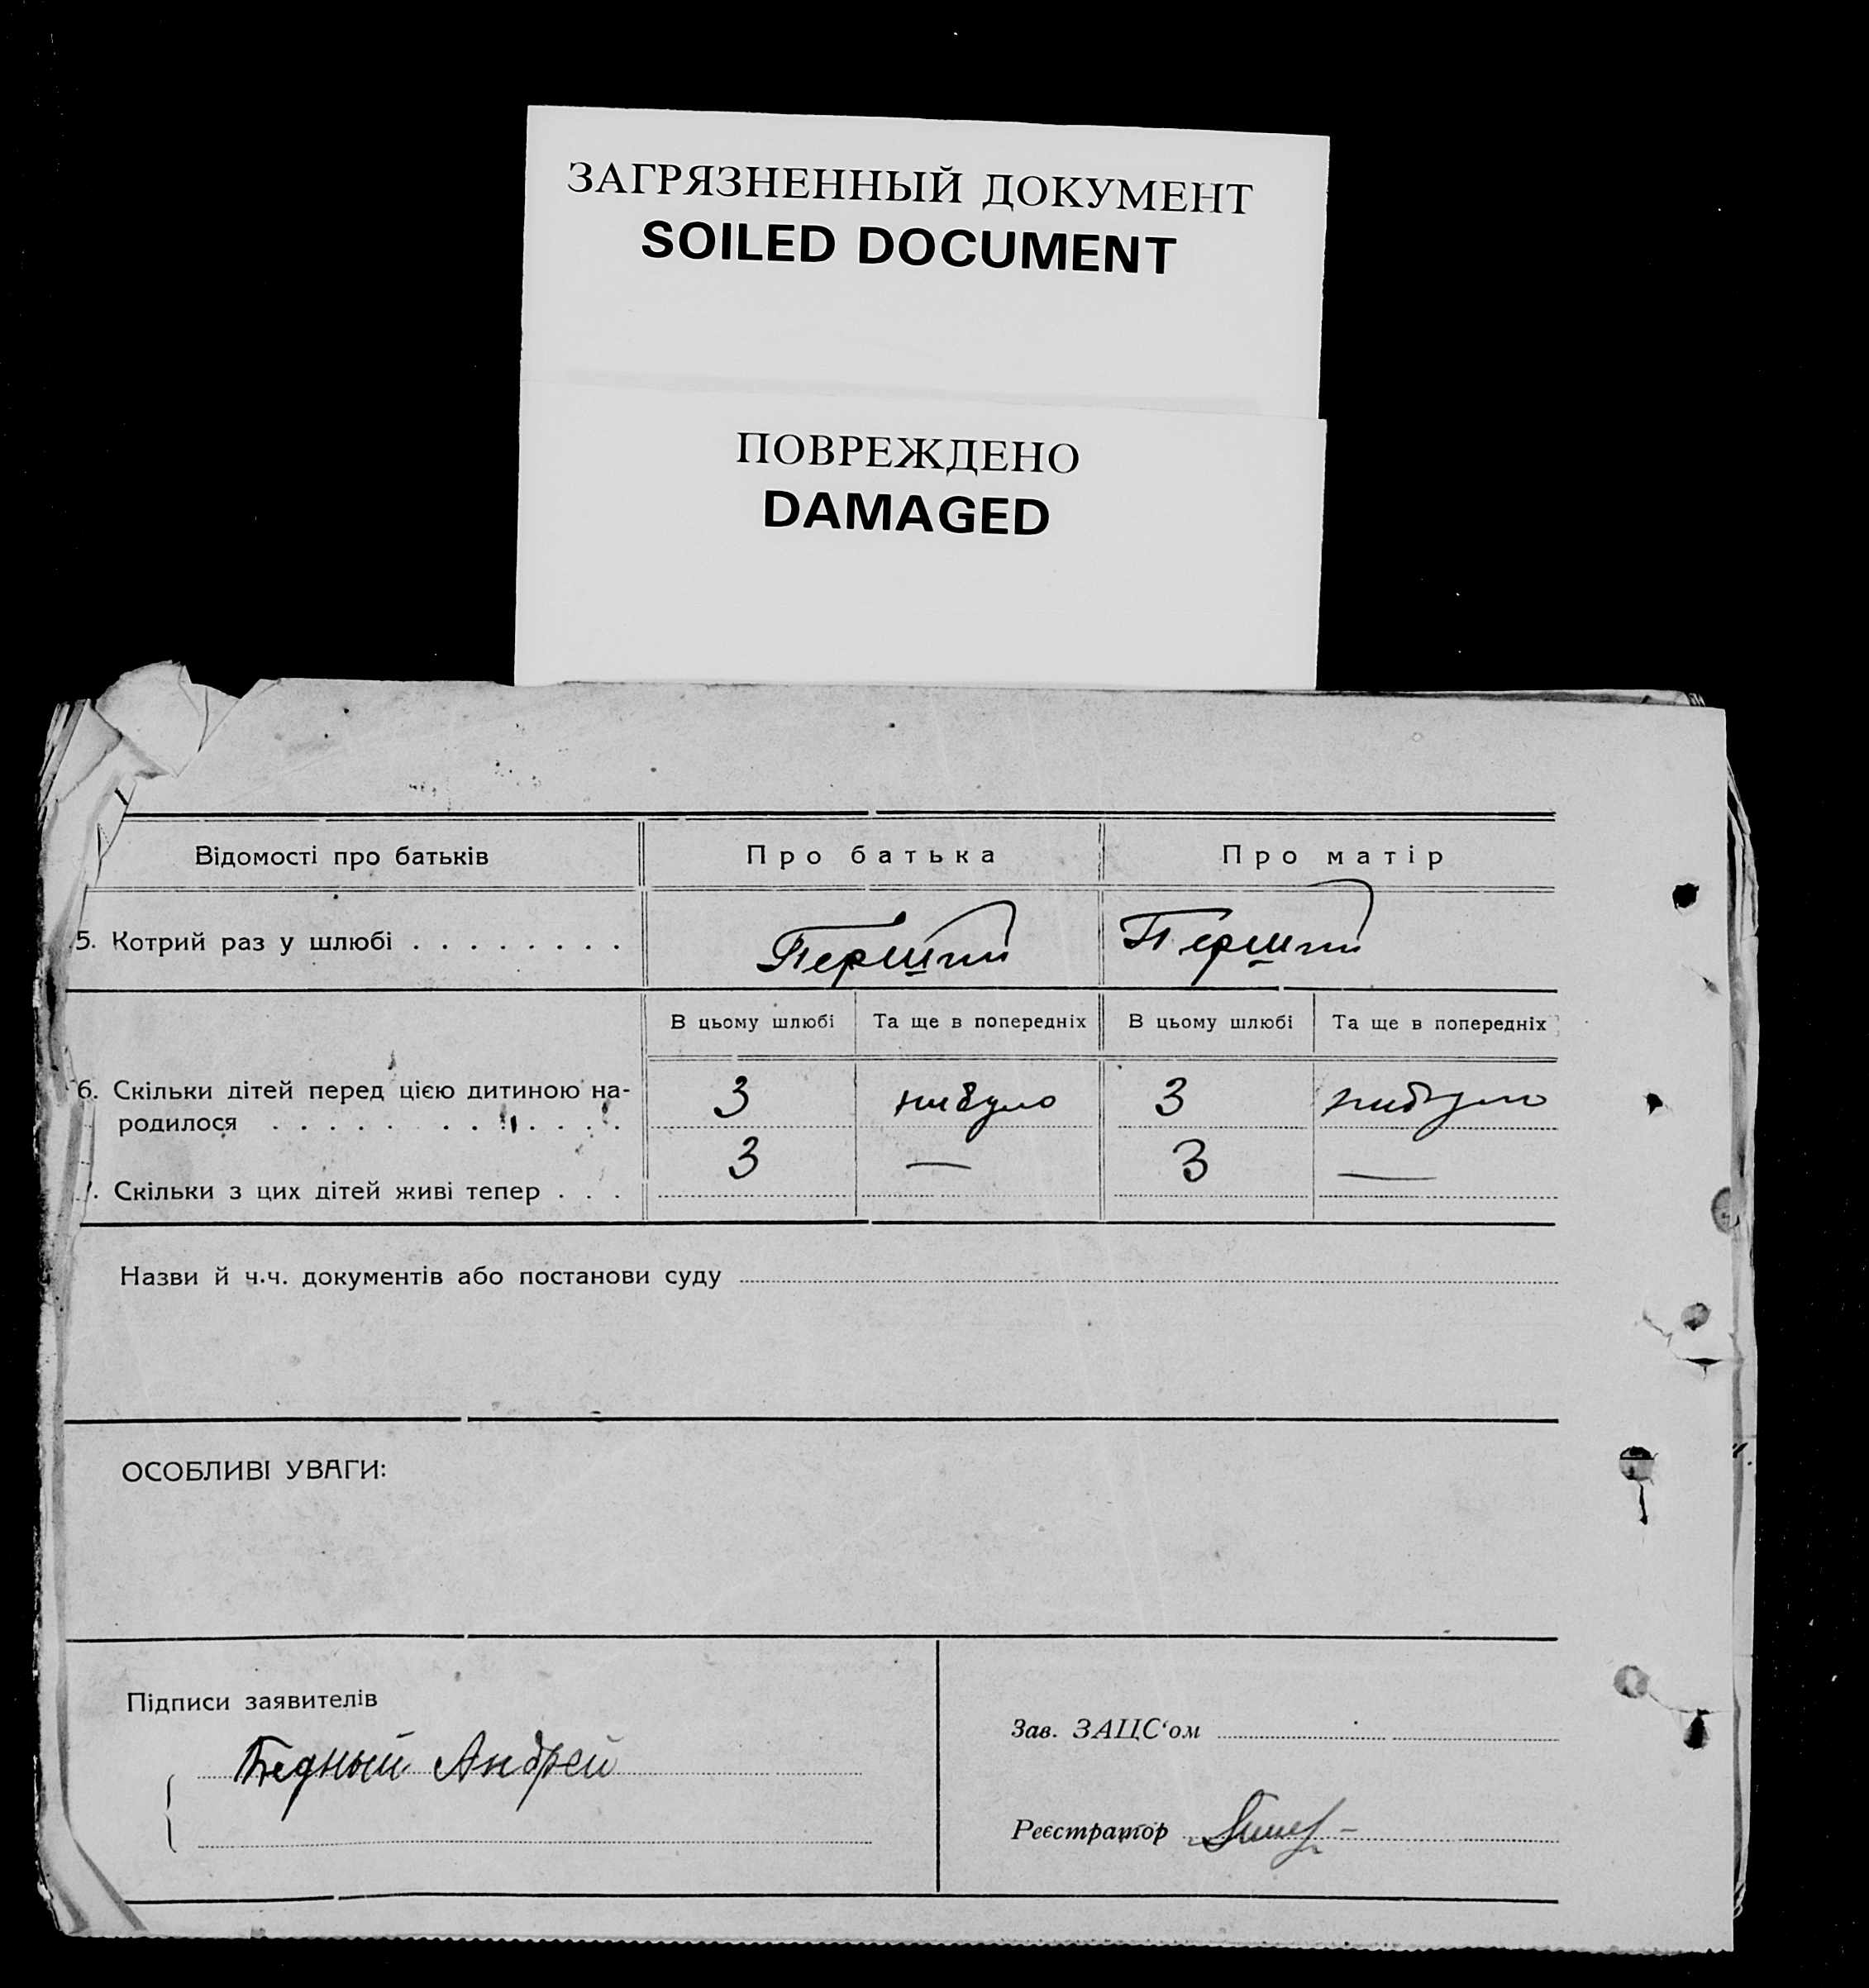 ЗАГРЯЗНЕННЫЙ ДОКУМЕНТ
SOILED DOCUMENT
ПОВРЕЖДЕНО
DAMAGED
Відомості про батьків Про батька Про матір
5. Котрий раз у шлюбі . . . . . . . . Перший Перший
В цьому шлюбі Та ще в попередніх В цьому шлюбі Та ще в попередніх
6. Скільки дітей перед цією дитиною на-
родилося . . . . . . . . . . . 3 нибуло 3 нибуло
. Скільки з цих дітей живі тепер . . . 3 — 3 —
Назви й ч.ч. документів або постанови суду
ОСОБЛИВІ УВАГИ:
Підписи заявителів
Бедный Андрей
Зав. ЗАЦС‘ом
Реєстратор